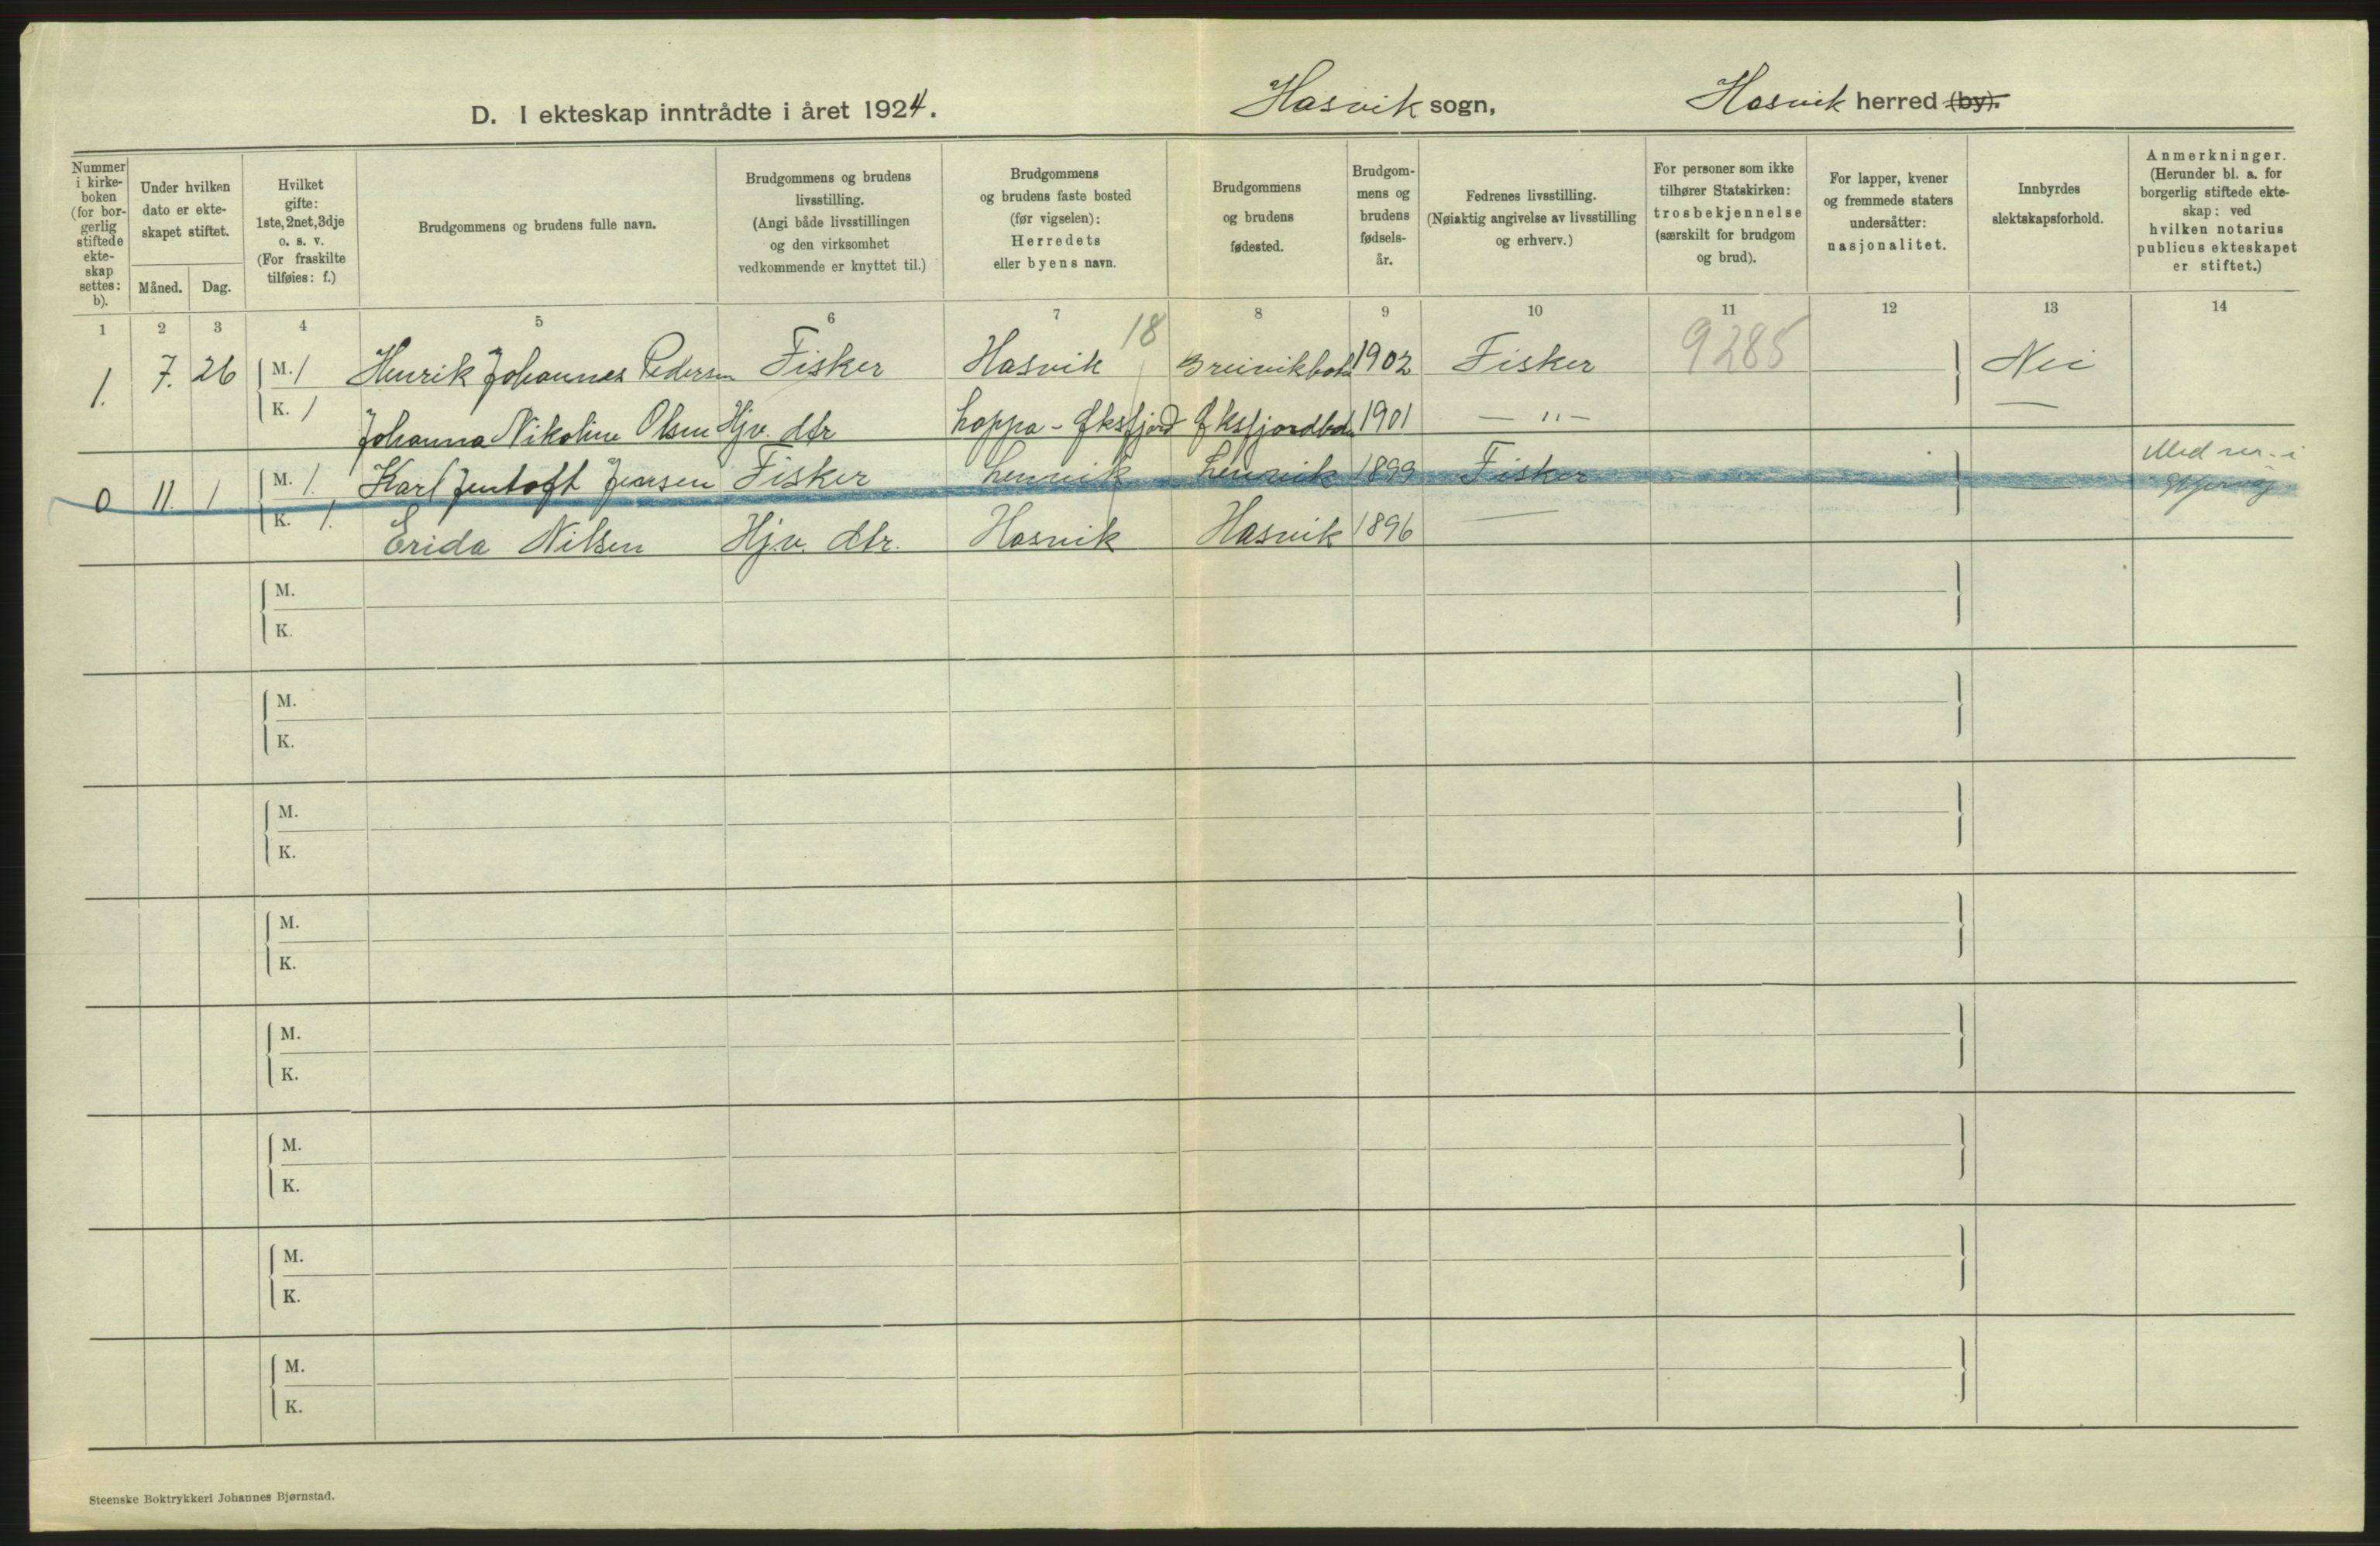 D. I ekteskap inntrådte i året 1924. Hasvik sogn, Hasvik herred (by).
Nummer i kirke-boken (for bor-gerlig stiftede ekte-skap settes: b).
Under hvilken dato er ekte-skapet stiftet.
Måned. Dag.
Hvilket gifte: 1ste, 2net, 3dje o. s. v. (For fraskilte tilføies: f.)
Brudgommens og brudens fulle navn.
Brudgommens og brudens livsstilling. (Angi både livsstillingen og den virksomhet vedkommende er knyttet til.)
Brudgommens og brudens faste bosted (før vigselen): Herredets eller byens navn.
Brudgommens og brudens fødested.
Brudgom-mens og brudens fødsels-år.
Fedrenes livsstilling. (Nøiaktig angivelse av livsstilling og erhverv.)
For personer som ikke tilhører Statskirken: trosbekjennelse (særskilt for brudgom og brud).
For lapper, kvener og fremmede staters undersåtter: nasjonalitet.
Innbyrdes slektskapsforhold.
Anmerkninger. (Herunder bl. a. for borgerlig stiftede ekte-skap: ved hvilken notarius publicus ekteskapet er stiftet.)
1 2 3 4 5 6 7 8 9 10 11 12 13 14
18 9285
1. 7. 26 M. 1 Henrik Johannes Pedersen Fisker Hasvik Breivikbotn 1902 Fisker Nei
K. 1 Johanna Nikoline Olsen Hjv. dtr Loppa - Øksfjord Øksfjordbotn 1901 — " — —
0 11. 1 M. 1. Karl Jentoft Jensen Fisker Lenvik Lenvik 1899 Fisker Med nr. i
K. 1. Erida Nilsen Hjv. dtr. Hasvik Hasvik 1896 —
M.
K.
M.
K.
M.
K.
M.
K.
M.
K.
M.
K.
M.
K.
M.
K.
Steenske Boktrykkeri Johannes Bjørnstad.